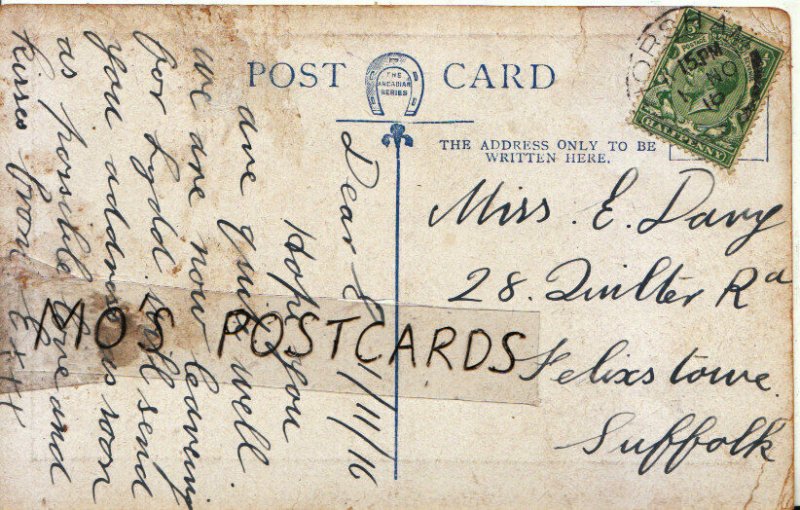 POST CARD
THE
ARCADIAN
SERIES
THE ADDRESS ONLY TO BE
WRITTEN HERE.
HORSHAM
9.15 PM
1 NO
16
HALFPENNY
Miss. E. Davy
28. Quilter Rd
Felixstowe.
Suffolk
1/11/16
Dear E
Hope you
are quite well.
We are now leaving
for Lydd. will send
you address as soon
as possible love and
Kisses from E xxx
MO'S POSTCARDS